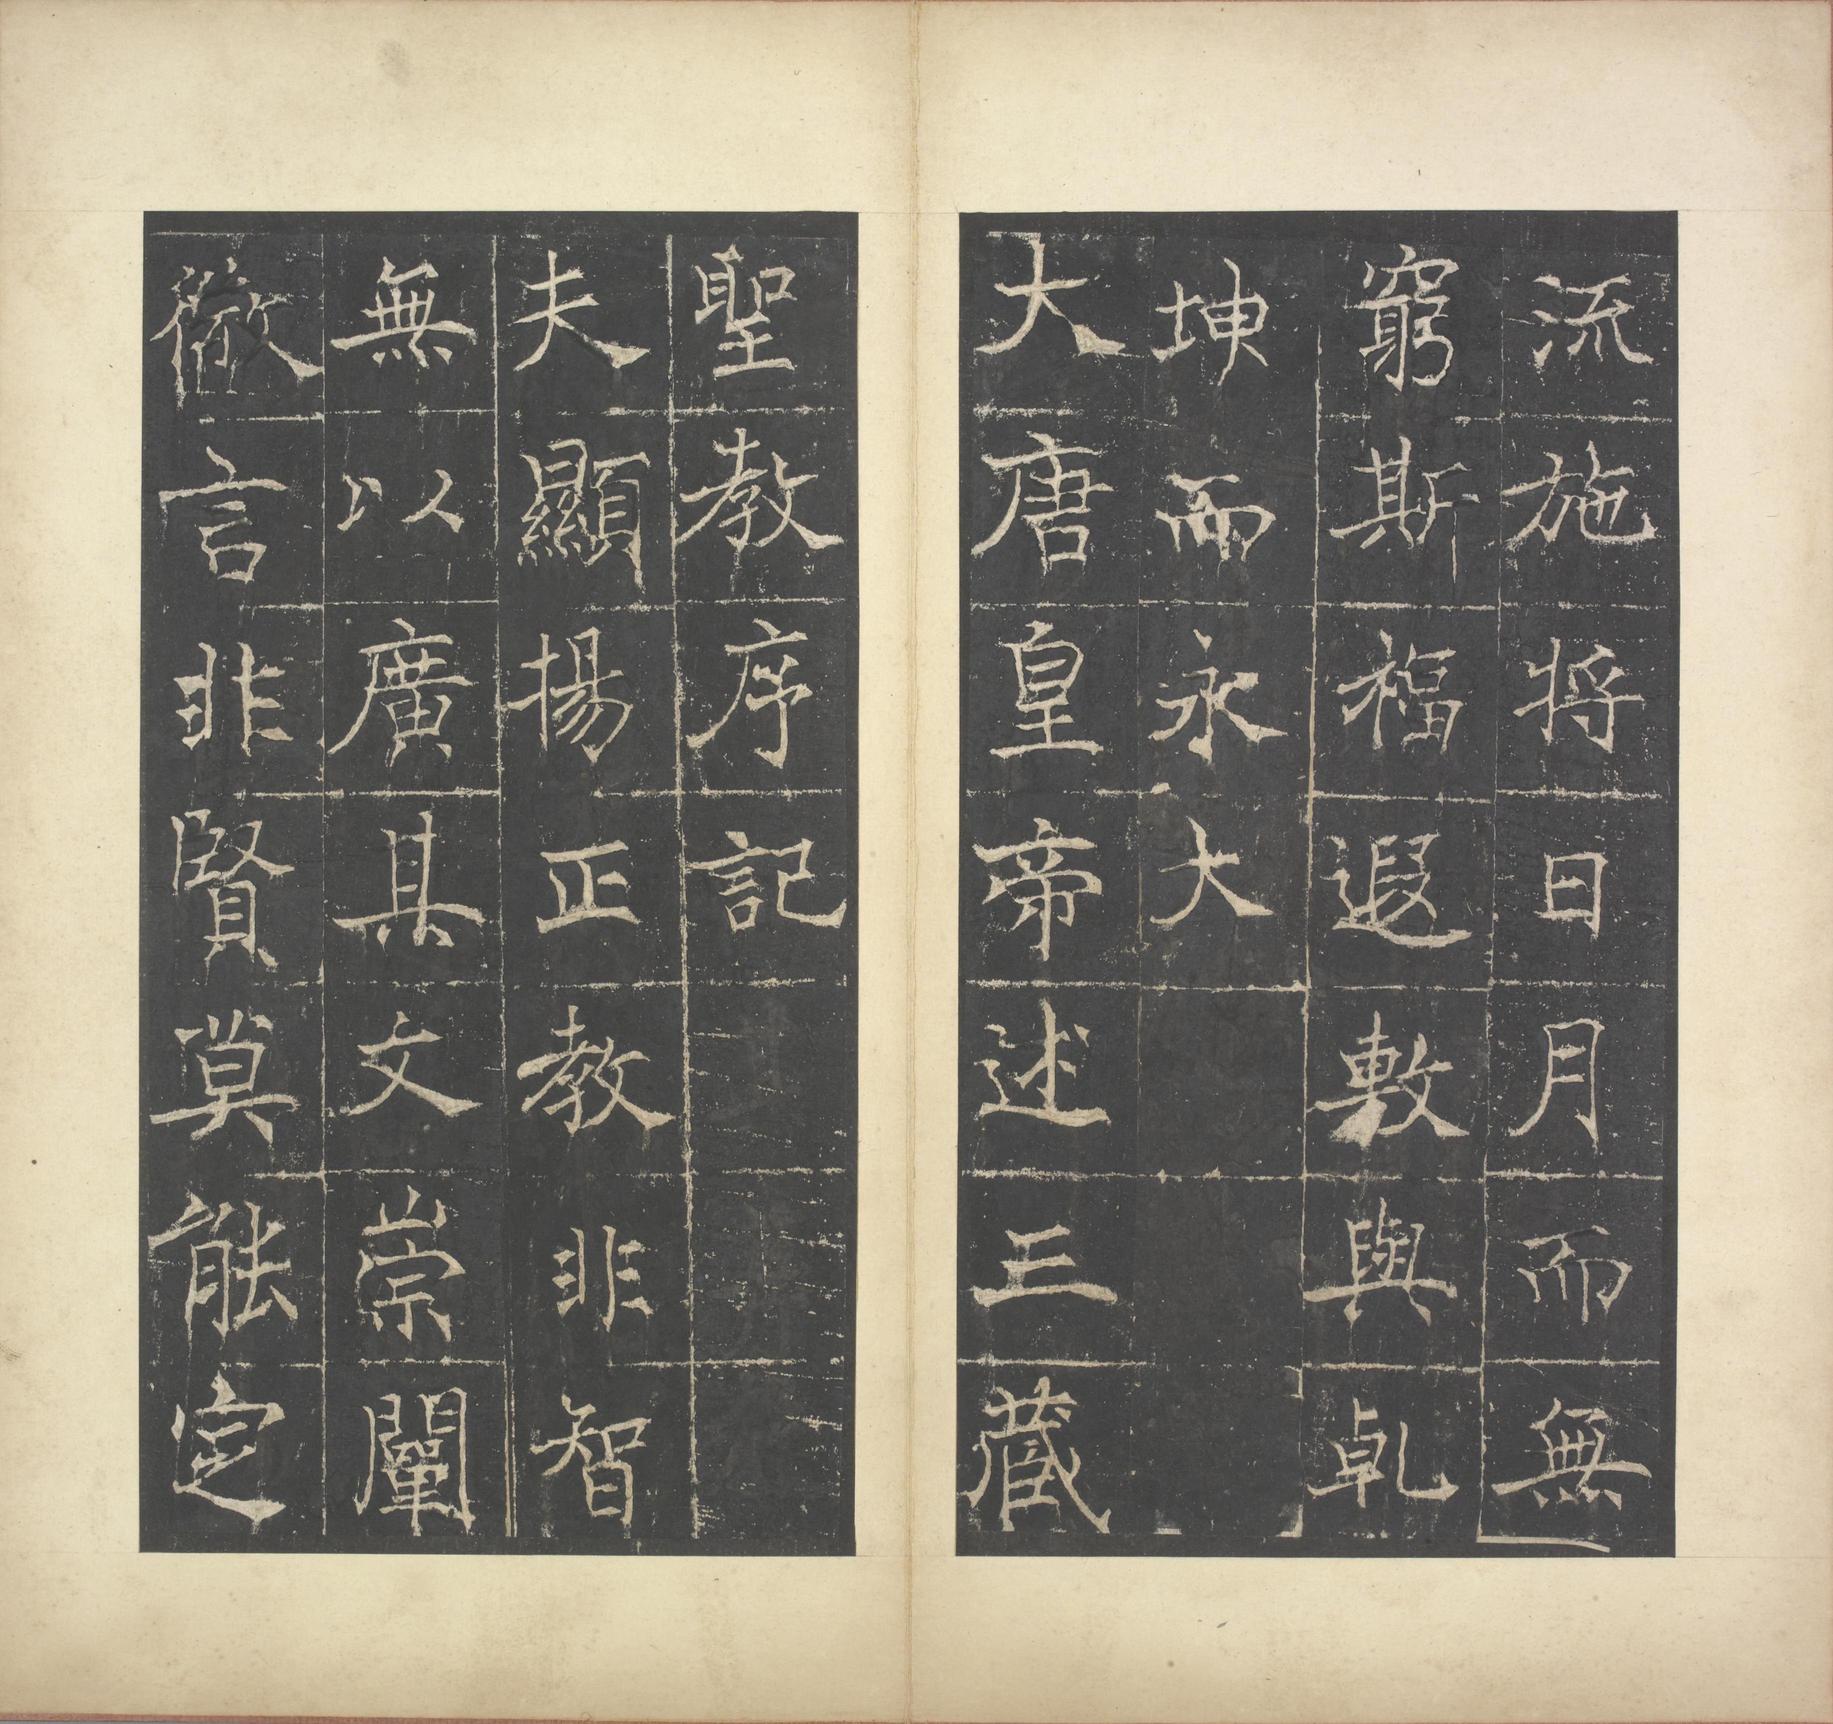 流施将日月而無
窮斯福遐敷與乹
坤而永大
大唐皇帝述三藏
聖教序記
夫顯揚正教非智
無以廣其文崇闡
微言非賢莫能定